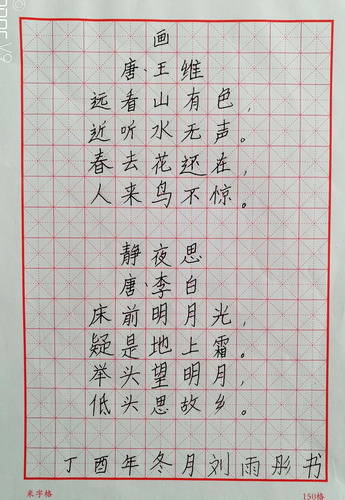 画
唐、王维
远看山有色,
近听水无声。
春去花还在,
人来鸟不惊。
静夜思
唐、李白
床前明月光,
疑是地上霜。
举头望明月,
低头思故乡。
丁酉年冬月刘雨彤书
米字格 150格